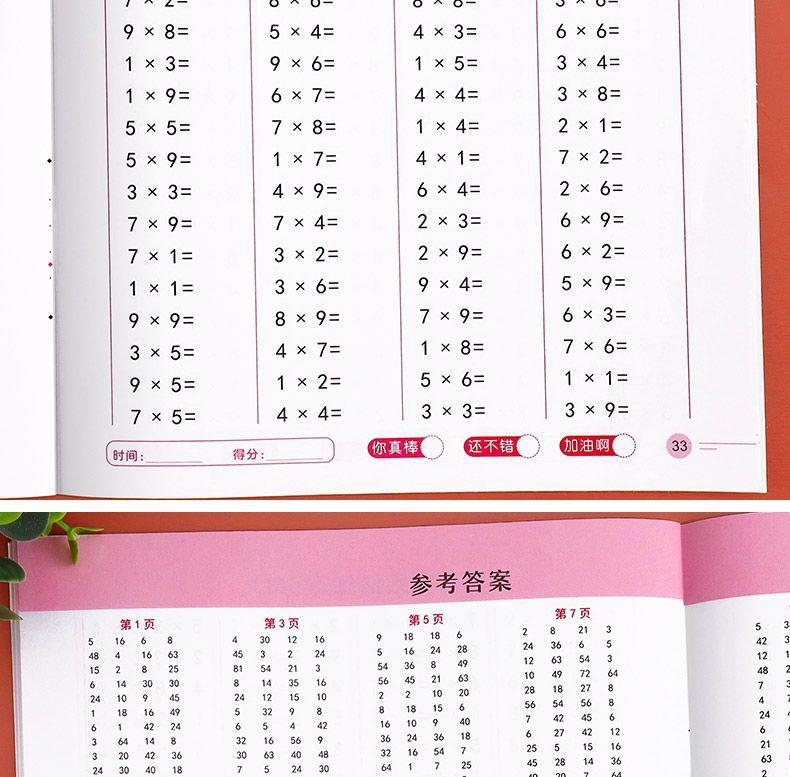 7 × 2= 8 × 6= 3 × 6=
9 × 8= 5 × 4= 4 × 3= 6 × 6=
1 × 3= 9 × 6= 1 × 5= 3 × 4=
1 × 9= 6 × 7= 4 × 4= 3 × 8=
5 × 5= 7 × 8= 1 × 4= 2 × 1=
5 × 9= 1 × 7= 4 × 1= 7 × 2=
3 × 3= 4 × 9= 6 × 4= 2 × 6=
7 × 9= 7 × 4= 2 × 3= 6 × 9=
7 × 1= 3 × 2= 2 × 9= 6 × 2=
1 × 1= 3 × 6= 9 × 4= 5 × 9=
9 × 9= 8 × 9= 7 × 9= 6 × 3=
3 × 5= 4 × 7= 1 × 8= 7 × 6=
9 × 5= 1 × 2= 5 × 6= 1 × 1=
7 × 5= 4 × 4= 3 × 3= 3 × 9=
时间: 得分: 你真棒 还不错 加油啊 33
参考答案
第1页 第3页 第5页 第7页
5 16 6 8 4 30 12 16 9 18 18 6 2 8 21 3 5
48 4 16 63 45 3 2 24 5 16 24 28 24 36 6 5 42
15 2 8 25 81 54 21 3 54 36 8 49 12 63 54 3 12
6 14 30 30 8 14 35 16 56 45 21 63 10 49 72 64 48
24 10 9 45 24 12 15 10 2 2 10 20 28 18 27 8 7
1 18 16 49 5 32 9 8 8 18 15 6 56 54 56 8 4
6 1 42 24 6 5 4 42 16 10 9 40 7 42 45 6 24
3 64 14 8 32 16 56 9 36 24 36 18 6 27 42 12 6
3 20 42 36 30 63 40 48 32 16 54 7 25 5 15 16 21
24 30 40 18 7 24 35 21 64 1 7 25 28 5 14 36 63